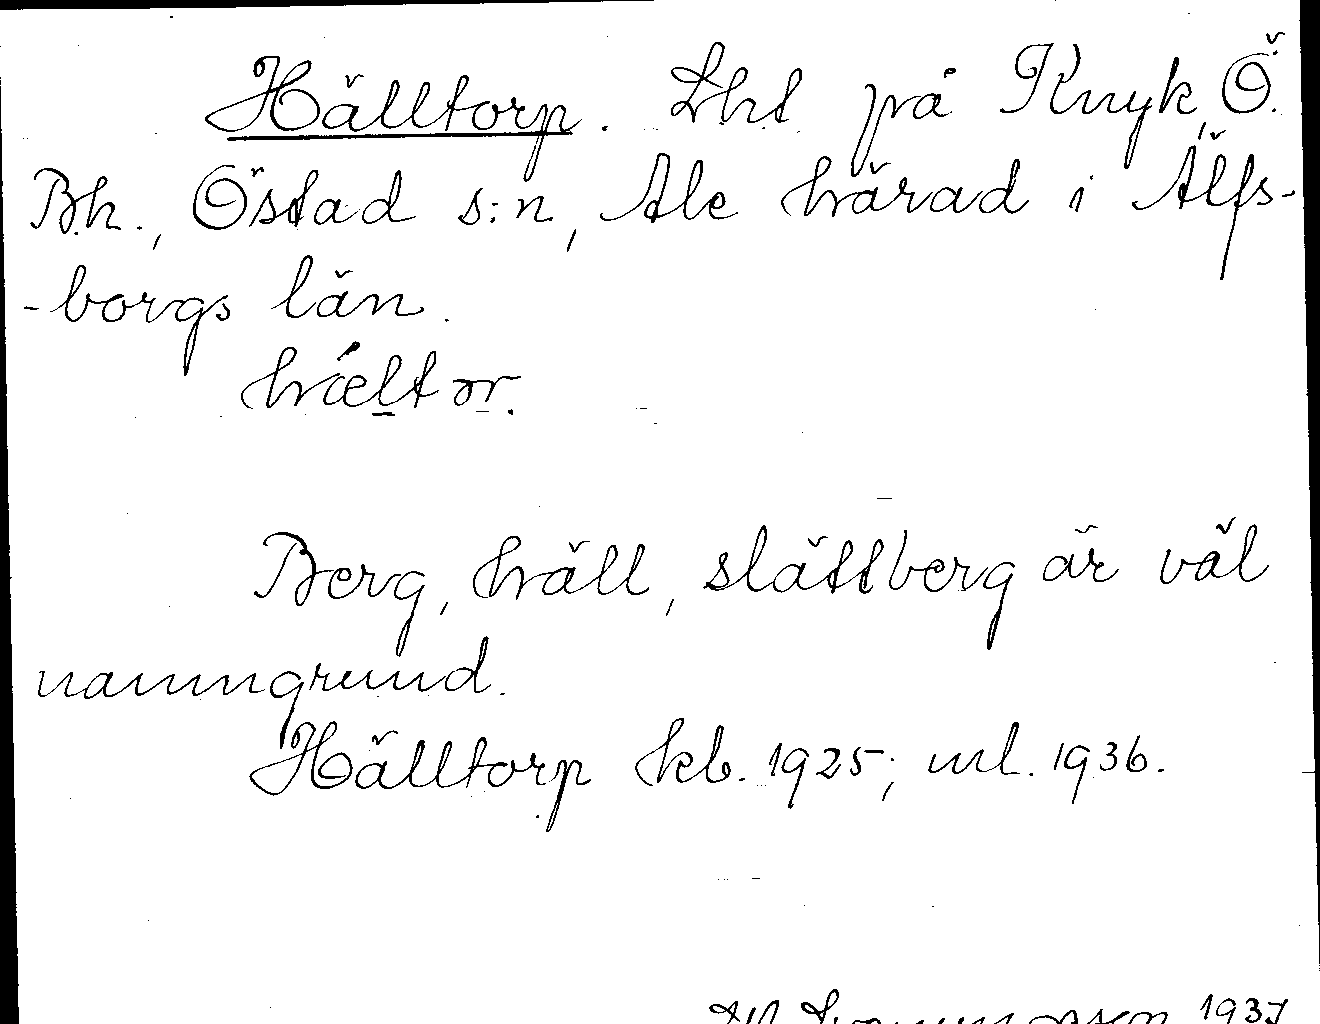 Hälltorp. Lht på Knyk, Ö.
Bh., Östad s:n, Ale härad i Älfs-
-borgs län.
hæltor.
Berg, häll, slättberg är väl
namngrund.
Hälltorp kb. 1925; ml. 1936.
1937